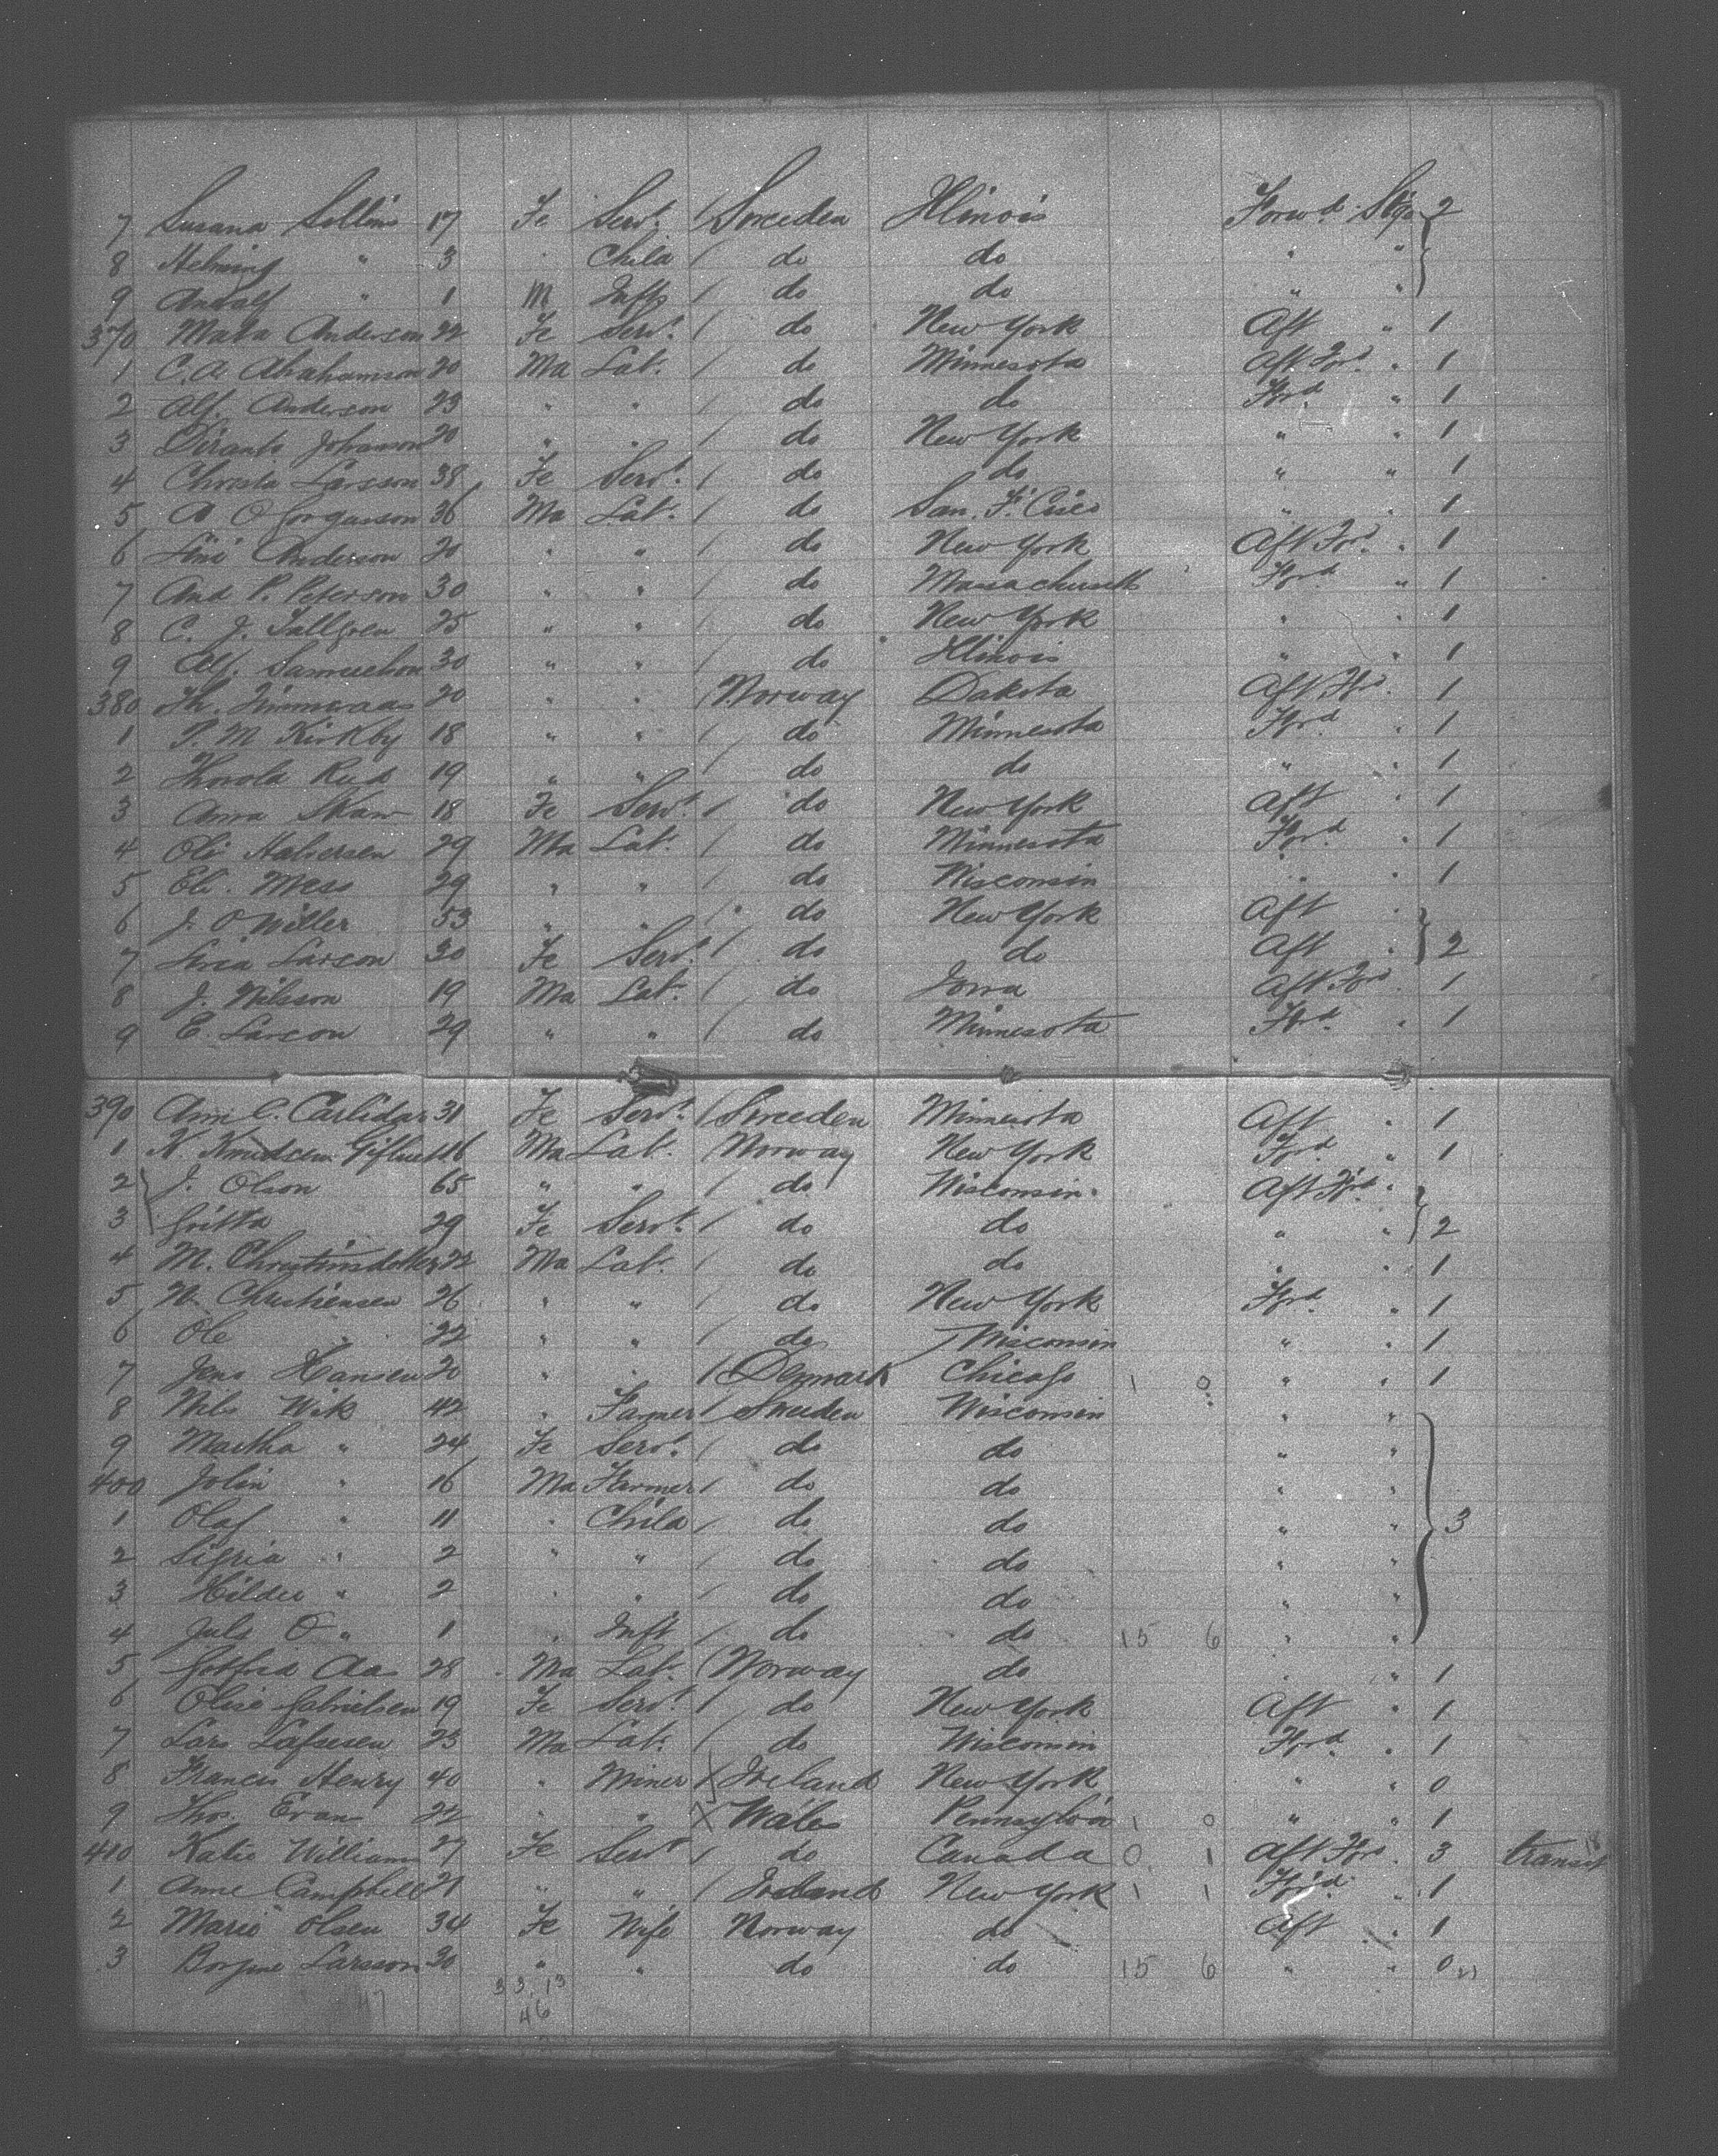 7 Susana Sellins 17 Fe Servt. / Sweeden Illinois Forwd. Stge 2
8 Helming " 3 " Child / do do " "
9 Andolf " 1 M Inft / do do " "
370 Mata Anderson 22 Fe Servt. / do New York Aft " 1
1 C. A. Abrahamson 20 Ma Lab. / do Minnesota Aft Ford. " 1
2 Alf. Anderson 23 " " / do do Ford. " 1
3 Johanson 20 " " / do New York " " 1
4 Christa Larsson 38 Fe Servt. / do do " " 1
5 A O 36 Ma Lab. / do San. F. Cisco " " 1
6 Anderson 20 " " / do New York Aft Ford. " 1
7 And P. Peterson 30 " " / do Massachusetts Ford " 1
8 C. J. Tullgren 25 " " / do New York " " 1
9 Alf. Samuelson 30 " " / do Illinois " " 1
380 Th. 20 " " / Norway Dakota Aft Ford. 1
1 P. M Kirkby 18 " " / do Minnesota Ford. " 1
2 Thorold Rud 19 " " / do do " " 1
3 Anna Skaw 18 Fe Servt. / do New York Aft " 1
4 Ole Halversen 29 Ma Lab. / do Minnesota Ford. " 1
5 El. Mess 29 " " / do Wisconsin " " 1
6 J. O Willer 53 " " / do New York Aft "
7 Larson 30 Fe Servt. / do do Aft " 2
8 J. Nilsson 19 Ma Lab. / do Iowa Aft Ford. 1
9 E. Larson 29 " " / do Minnesota Ford. " 1
390 Ann C. Carlidar 31 Fe Servt. / Sweeden Minnesota Aft " 1
1 K. Knudsen 16 Ma Lab. / Norway New York Ford " 1
2 J. Olson 65 " " / do Wisconsin Aft Ford. "
3 Gritta 29 Fe Servt. / do do " " 2
4 M. Christinsdotter 22 Ma Lab. / do do " " 1
5 N. Christiensen 26 " " / do New York Ford. " 1
6 Ole " 22 " " / do Wisconsin " " 1
7 Jens Hansen 20 " " / Denmark Chicago 1 0 " " 1
8 Nils Wik 42 " Farmer / Sweeden Wisconsin " "
9 Martha " 24 Fe Servt. / do do " "
400 John " 16 Ma Farmer / do do " "
1 Olaf " 11 " Child / do do " " 3
2 Sigrid " 2 " " / do do " "
3 Hilder " 2 " " / do do " "
4 Jule O " 1 " Inft / do do 15 6 " "
5 Gotfrid Aas 28 Ma Lab. / Norway do " " 1
6 Olise Gabrielsen 19 Fe Servt. / do New York Aft " 1
7 Lars 23 Ma Lab. / do Wisconsin Ford. " 1
8 Francis Henry 40 " Miner X Ireland New York " " 0
9 Thos. Evan 22 " " X Wales 1 0 " " 1
410 Katie William 27 Fe Servt / do Canada 0 1 Aft Ford. 3 transit
1 Anne Campbell 21 " " / Ireland New York 1 1 Ford. " 1
2 Marie Olsen 34 Fe Wife Norway do Aft " 1
3 Larsson 20 " " do do 15 6 " " 0
33 13
47
46